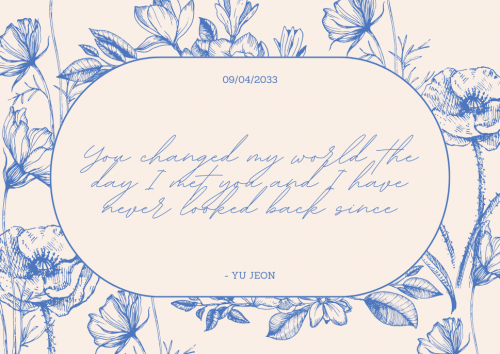 09/04/2033
You changed my world, the
day I met you and I have
never looked back since
- YU JEON